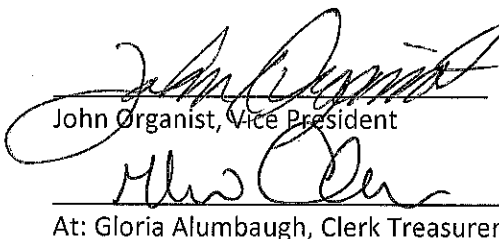 John Organist
John Organist, Vice President
At: Gloria Alumbaugh, Clerk Treasurer